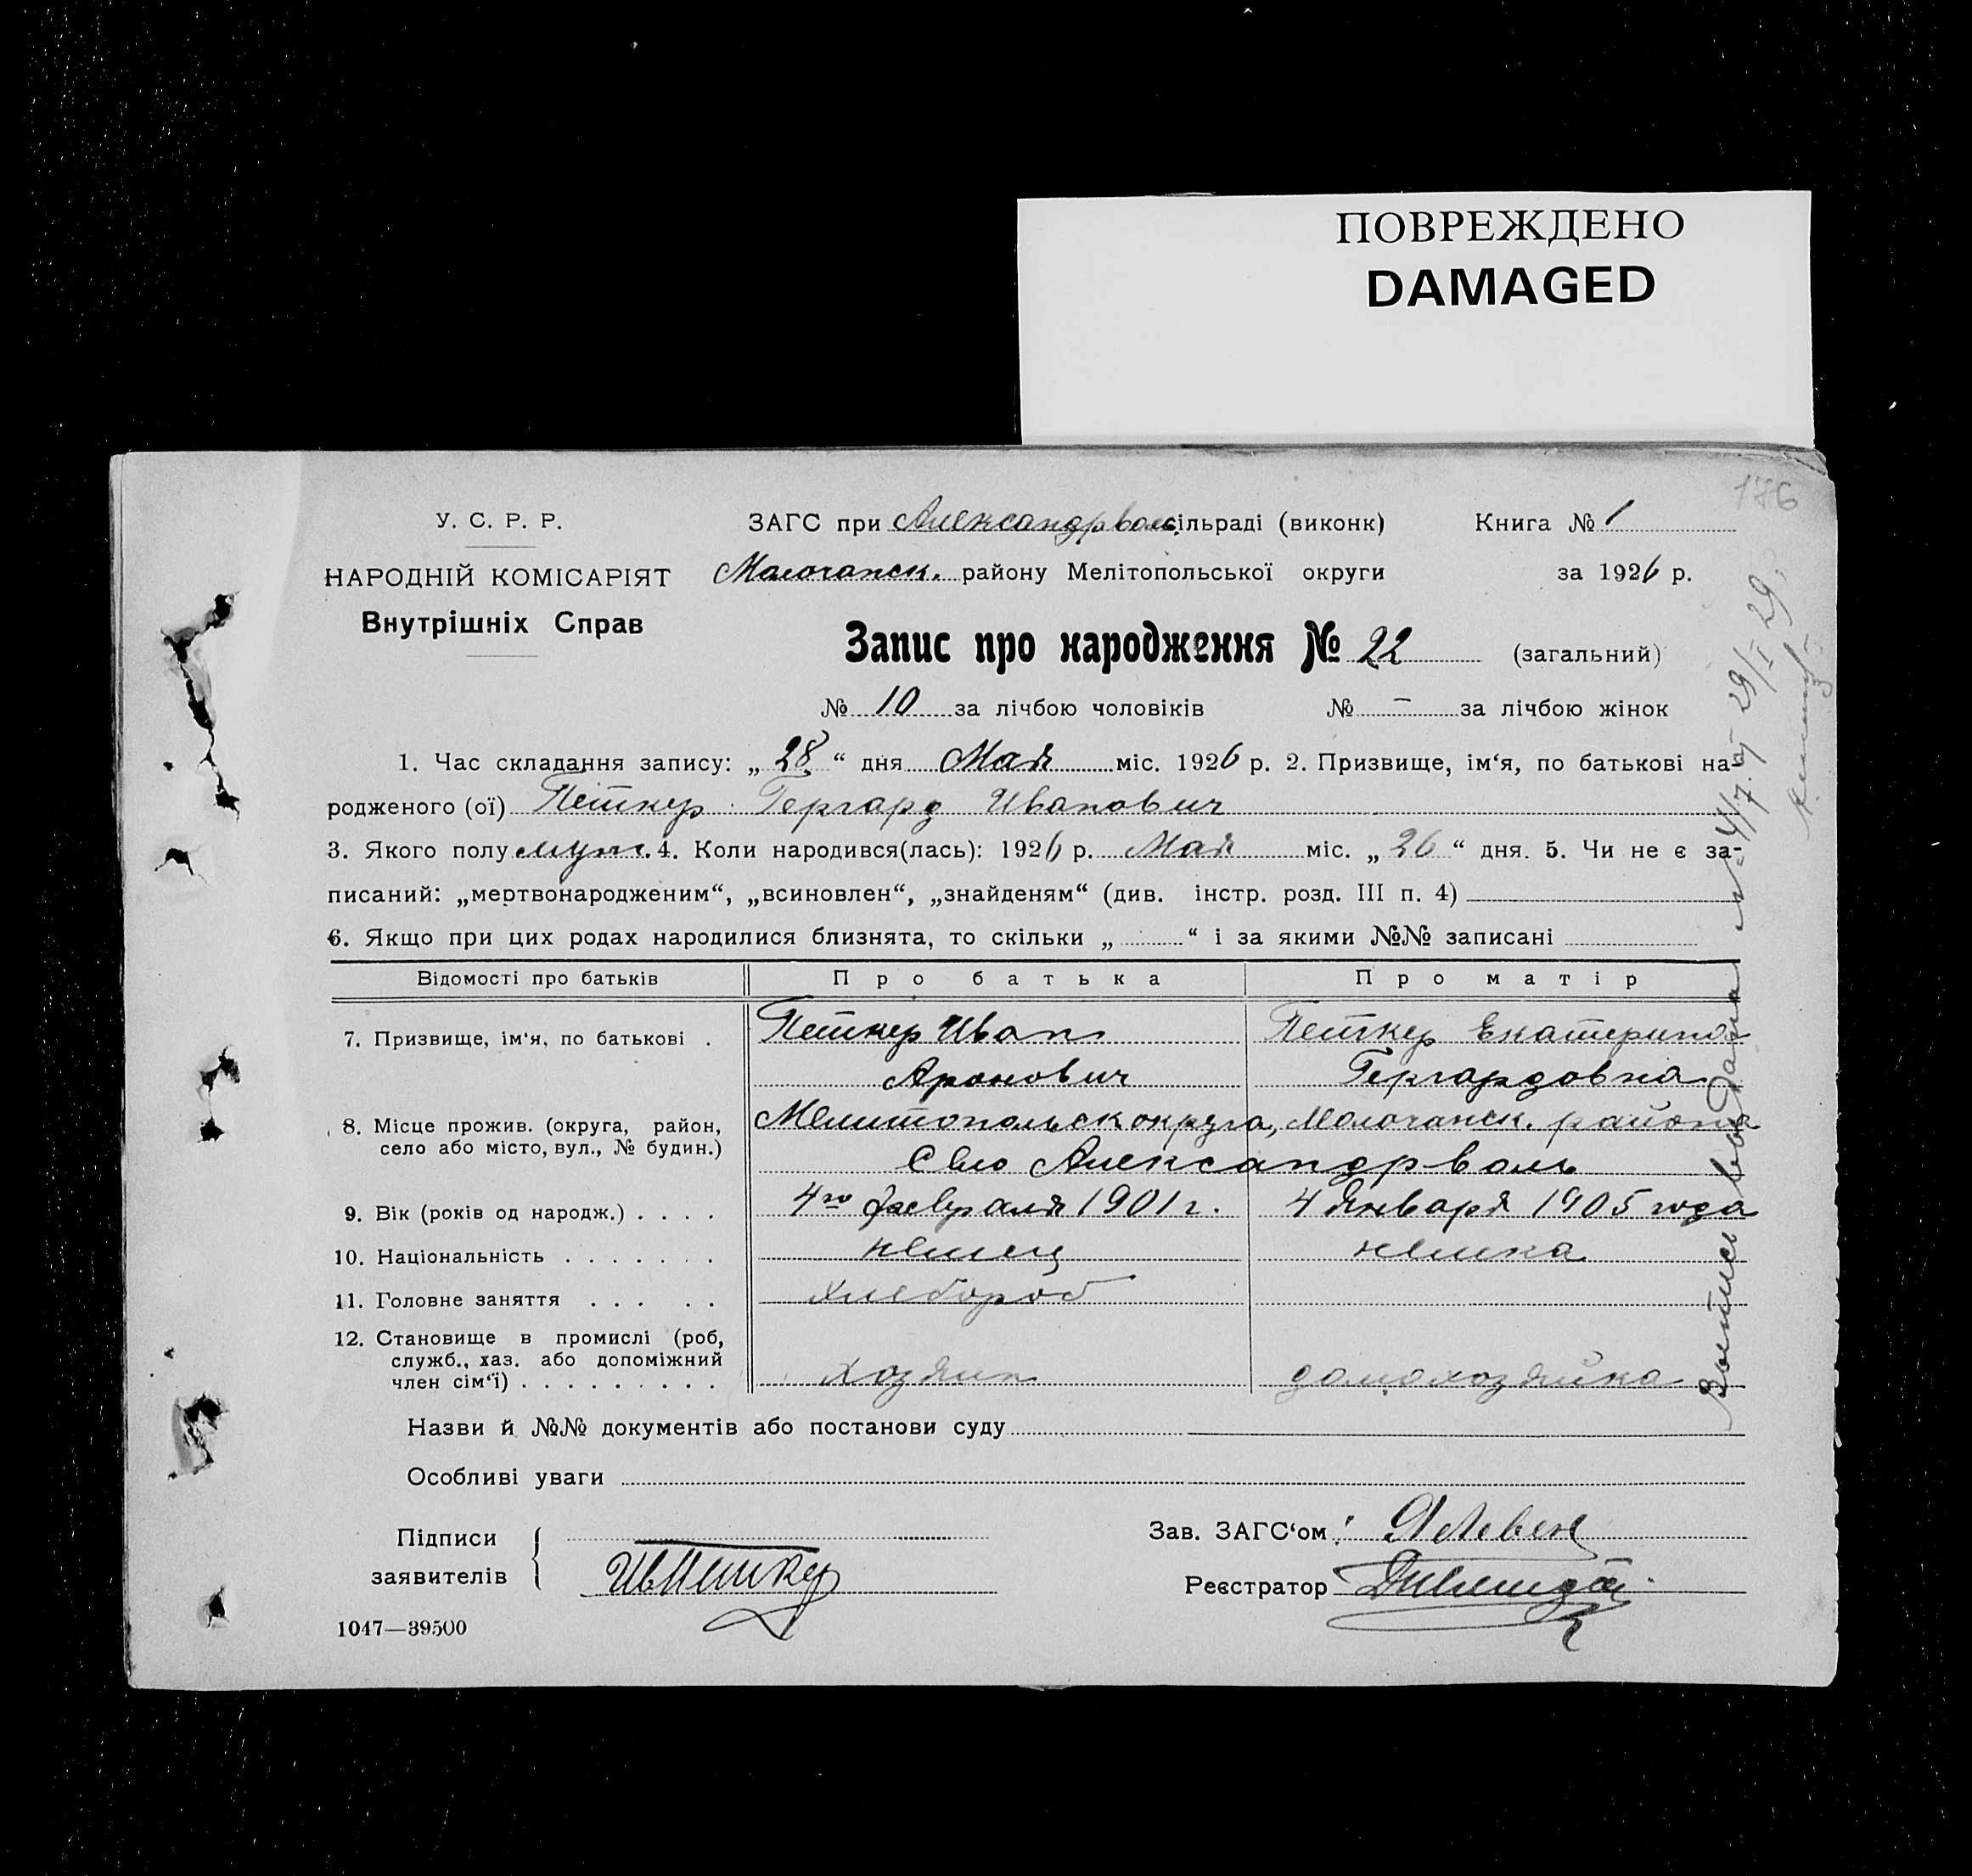 ПОВРЕЖДЕНО
DAMAGED
176
У. С. Р. Р.
НАРОДНІЙ КОМІСАРІЯТ
Внутрішніх Справ
ЗАГС при Александрваль сільраді (виконк) Книга № 1
Молочанск. району Мелітопольської округи за 1926 р.
Запис про народження № 22 (загальний)
№ 10 за лічбою чоловіків № – за лічбою жінок
1. Час складання запису: „ 28 “ дня Мая міс. 1926 р. 2. Призвище, ім‘я, по батькові на-
родженого (ої) Петкер Гергард Иванович
3. Якого полу муж. 4. Коли народився(лась): 1926 р. Мая міс. „ 26 “ дня. 5. Чи не є за-
писаний: „мертвонародженим“, „всиновлен“, „знайденям“ (див. інстр. розд. III п. 4)
6. Якщо при цих родах народилися близнята, то скільки „ “ і за якими №№ записані
Відомості про батьків Про батька Про матір
7. Призвище, ім‘я, по батькові . Петкер Иван Петкер Екатерина
Аронович Гергардовна
8. Місце прожив. (округа, район, Мелитопольск округа, Молочанск. района
село або місто, вул., № будин.) Село Александрваль
9. Вік (років од народж.) . . . . 4го февраля 1901 г. 4 Января 1905 года
10. Національність . . . . . . . немец немка
11. Головне заняття . . . . . хлебороб
12. Становище в промислі (роб,
служб., хаз. або допоміжний
член сім‘ї) . . . . . . . . . хозяин домохозяйка
Назви й №№ документів або постанови суду
Особливі уваги
Підписи
заявителів ИвПеткер
Зав. ЗАГС‘ом
Реєстратор
1047—39500
Выпись выдана 29/I 29